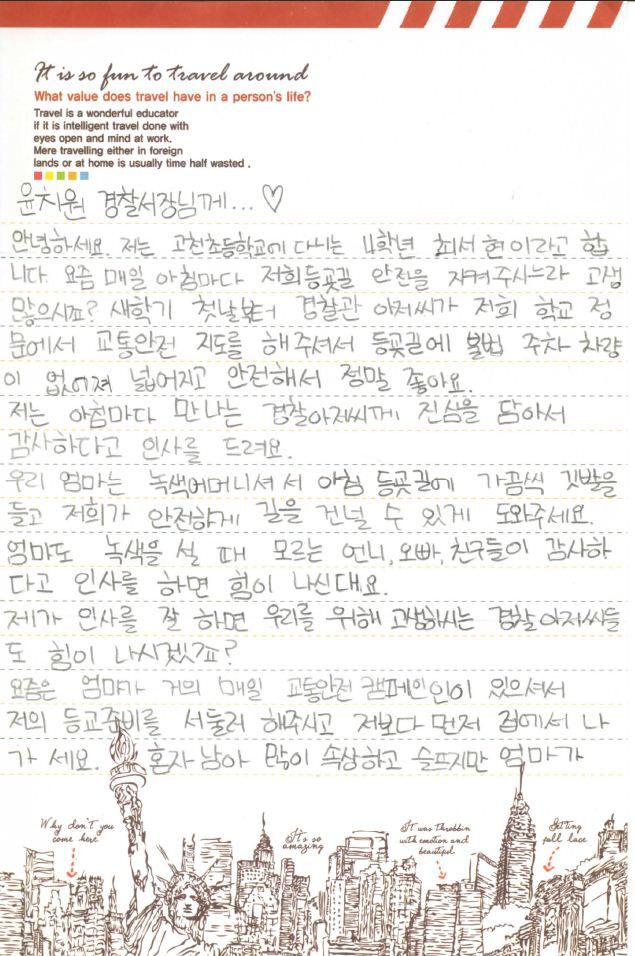 It is so fun to travel around
What value does travel have in a person's life?
Travel is a wonderful educator
if it is intelligent travel done with
eyes open and mind at work.
Mere travelling either in foreign
lands or at home is usually time half wasted .
윤치원 경찰서장님께... ♡
안녕하세요. 저는 고천초등학교에 다니는 4학년 최서현이라고 합
니다. 요즘 매일 아침마다 저희등굣길 안전을 지켜주시느라 고생
많으시죠? 새학기 첫날부터 경찰관 아저씨가 저희 학교 정
문에서 교통안전 지도를 해주셔서 등굣길에 불법 주차 차량
이 없어져 넓어지고 안전해서 정말 좋아요.
저는 아침마다 만나는 경찰아저씨께 진심을 담아서
감사하다고 인사를 드려요.
우리 엄마는 녹색어머니셔서 아침 등굣길에 가끔씩 깃발을
들고 저희가 안전하게 길을 건널 수 있게 도와주세요.
엄마도 녹색을 설 때 모르는 언니, 오빠, 친구들이 감사하
다고 인사를 하면 힘이 나신대요.
제가 인사를 잘 하면 우리를 위해 고생하시는 경찰아저씨들
도 힘이 나시겠죠?
요즘은 엄마가 거의 매일 교통안전 캠페인인이 있으셔서
저의 등교준비를 서둘러 해주시고 저보다 먼저 집에서 나
가 세요. 혼자 남아 많이 속상하고 슬프지만 엄마가
Why don't you
come here
It's so
amazing
It was throbbin
with emotion and
beautiful
Getting
full lace